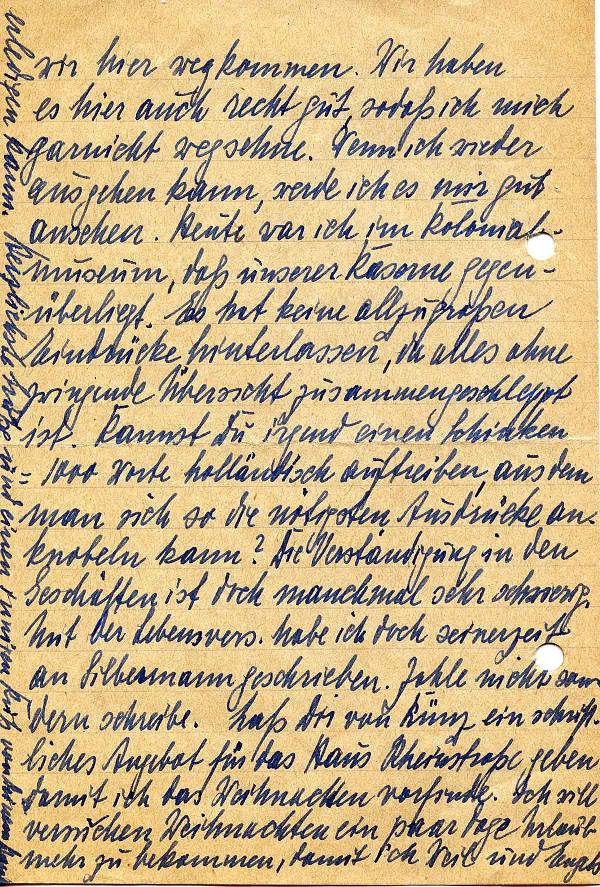 wir hier wegkommen. Wir haben
es hier auch recht gut, sodaß ich mich
garnicht wegsehne. Wenn ich wieder
ausgehen kann, werde ich es mir gut
ansehen. Heute war ich im Kolonial-
museum, daß unserer Kaserne gegen-
überliegt. Es hat keine allzugroßen
Eindrücke hinterlassen, da alles ohne
zwingende Übersicht zusammengeschleppt
ist. Kannst Du irgend einen Schinken
= 1000 Worte holländisch auftreiben, aus dem
man sich so die nötigsten Ausdrücke an-
knobeln kann? Die Verständigung in den
Geschäften ist doch manchmal sehr schwierig.
Mit der Lebensvers. habe ich doch seinerzeit
an Silbermann geschrieben. Zahle nicht son-
dern schreibe. Laß Dir von Künz ein schrift-
liches Angebot für das Haus Rheinstraße geben
damit ich das Weihnachten vorfinde. Ich will
versuchen Weihnachten ein paar Tage Urlaub
mehr zu bekommen, damit ich Weil und Engels
erledigen kann.